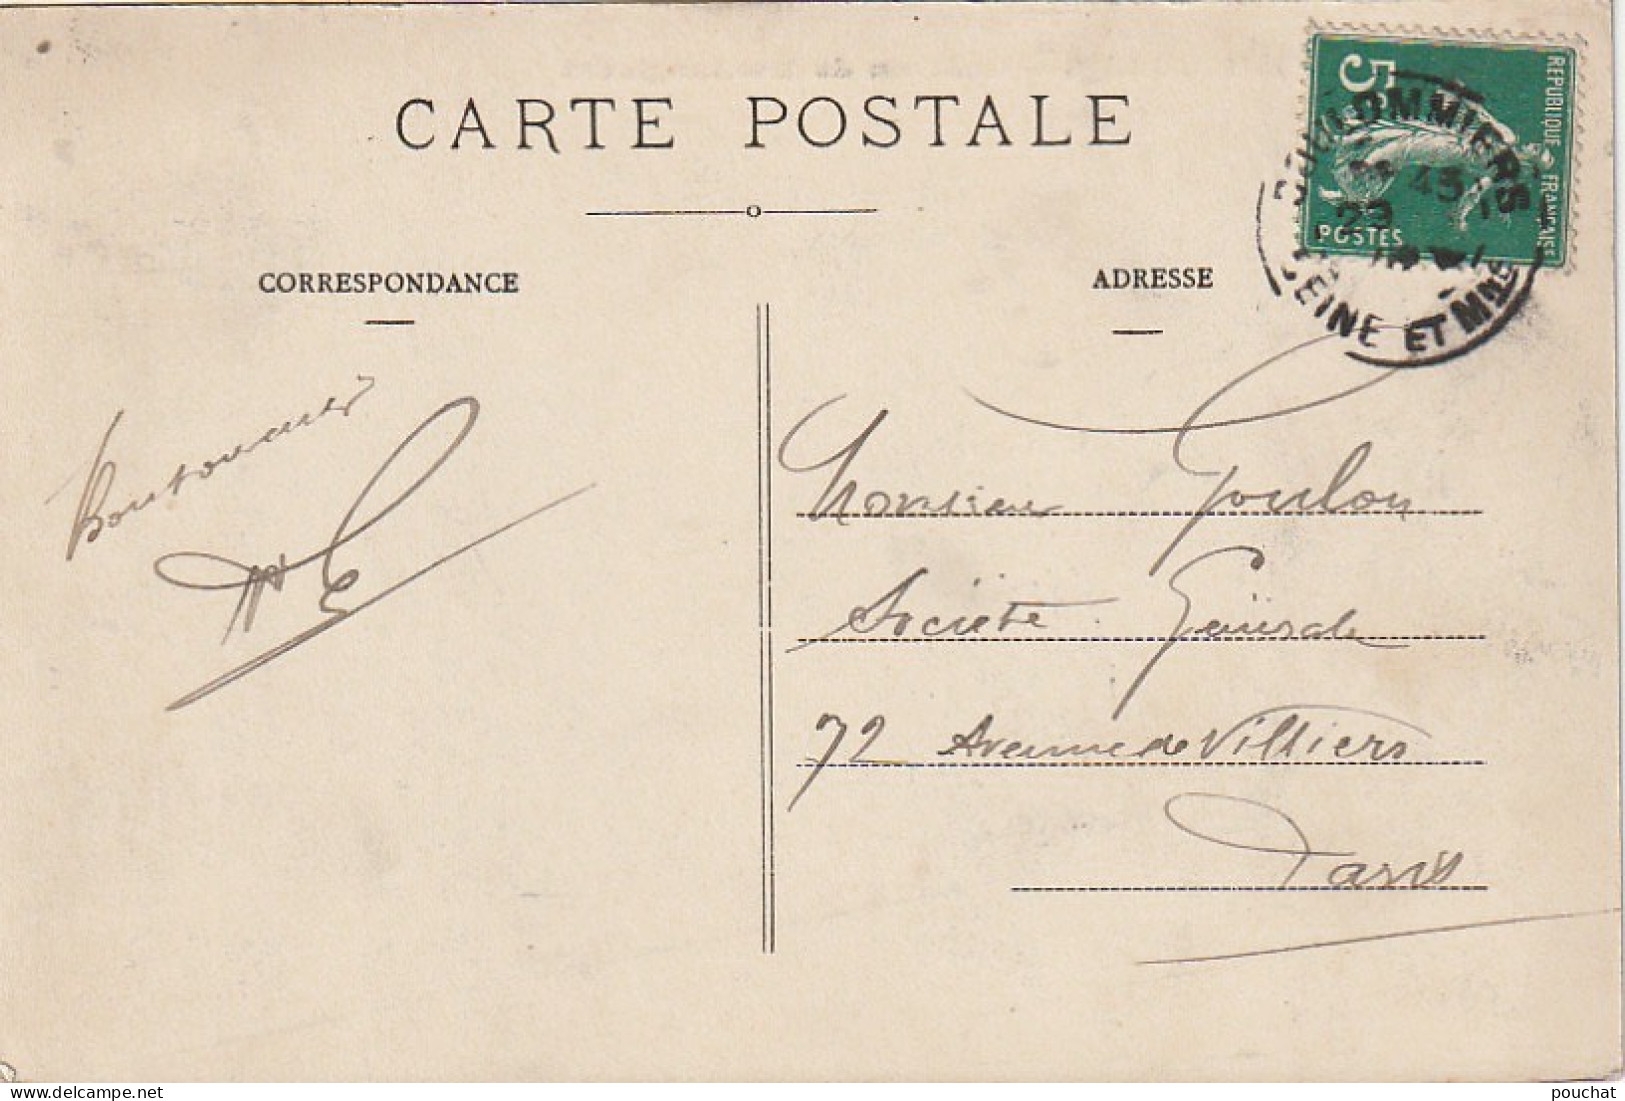 CARTE POSTALE
CORRESPONDANCE
ADRESSE
5c
REPUBLIQUE FRANÇAISE
POSTES
COULOMMIERS
45
23
SEINE ET MNE
Monsieur Goulon
Société Générale
72 Avenue de Villiers
Paris
delcampe.net
pouchat